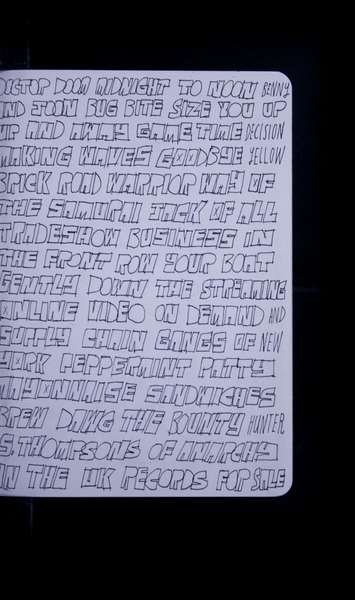 DOCTOR DOOM MIDNIGHT TO NOON BENNY
AND JOON BUG BITE SIZE YOU UP
UP AND AWAY GAME TIME DECISION
MAKING WAVES GOODBYE YELLOW
BRICK ROAD WARRIOR WAY OF
THE SAMURAI JACK OF ALL
TRADESHOW BUSINESS IN
THE FRONT ROW YOUR BOAT
GENTLY DOWN THE STREAMING
ONLINE VIDEO ON DEMAND AND
SUPPLY CHAIN GANGS OF NEW
YORK PEPPERMINT PATTY
MAYONNAISE SANDWICHES
BREW DAWG THE BOUNTY HUNTER
S. THOMPSONS OF ANARCHY
IN THE UK RECORDS FOR SALE